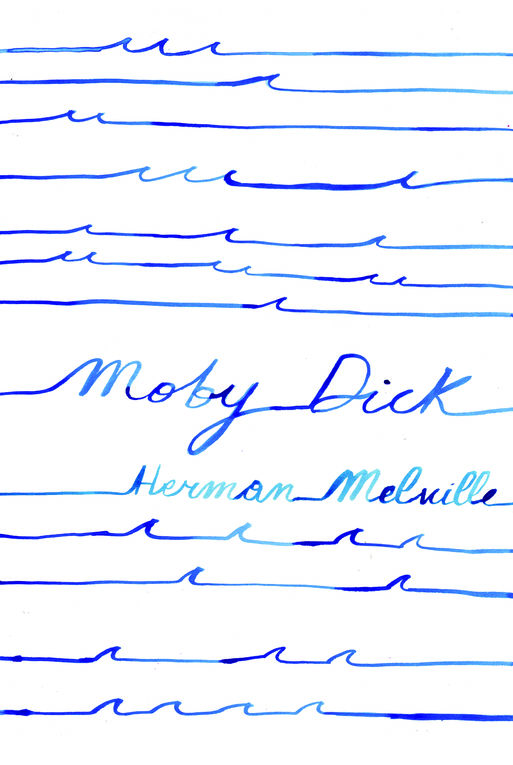 Moby Dick
Herman Melville